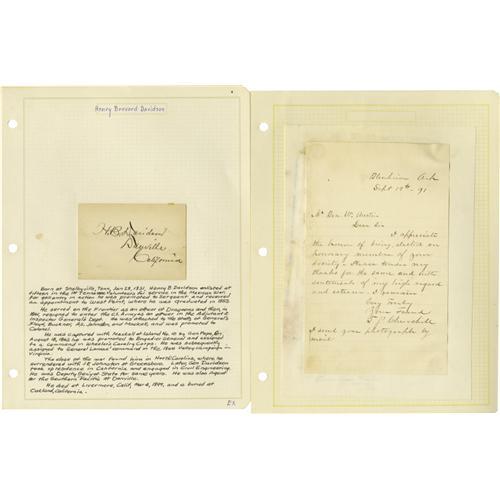 Henry Brevard Davidson
H.B. Davidson
Danville
California
Born at Shelbyville, Tenn, Jan 28, 1831, Henry B Davidson enlisted at
fifteen in the 1st Tennessee Volunteers for service in the Mexican War,
for gallantry in action he was promoted to Sergeant and received
an appointment to West Point, where he was graduated in 1853.
He served on the Frontier as an officer of Dragoons and then, in
1861, resigned to enter the C.S. Army as an officer in the Adjutant &
Inspector General's Dept. He was attached to the staffs of General's
Floyd, Buckner, A.S. Johnston, and Mackall, and was promoted to
Colonel.
He was captured with Mackall at Island No. 10 by Gen Pope, On
August 18, 1863 he was promoted to Brigadier General and assigned
to a command in Wheeler's Cavalry Corps. He was subsequently
assigned to General Lomax' command in the 1864 Valley campaign in
Virginia.
The close of the war found him in North Carolina, where he
surrendered with J.E. Johnston at Greensboro. Later, Gen Davidson
took up residence in California and engaged in Civil Engineering.
He was Deputy Sec'y of State for some years. He was also Agent
for the Southern Pacific at Danville.
He died at Livermore, Calif, Mar 4, 1899, and is buried at
Oakland, California.
EX
Blenheim Ark
Sept 19th 91
Mr Geo. W. Austin
Dear Sir
I appreciate
the honor of being elected an
honorary member of your
society. Please tender my
thanks for the same and with
sentiments of my high regard
and esteem. I remain
Very truly
Your friend
T. J. Churchill
I send you photographs by
mail